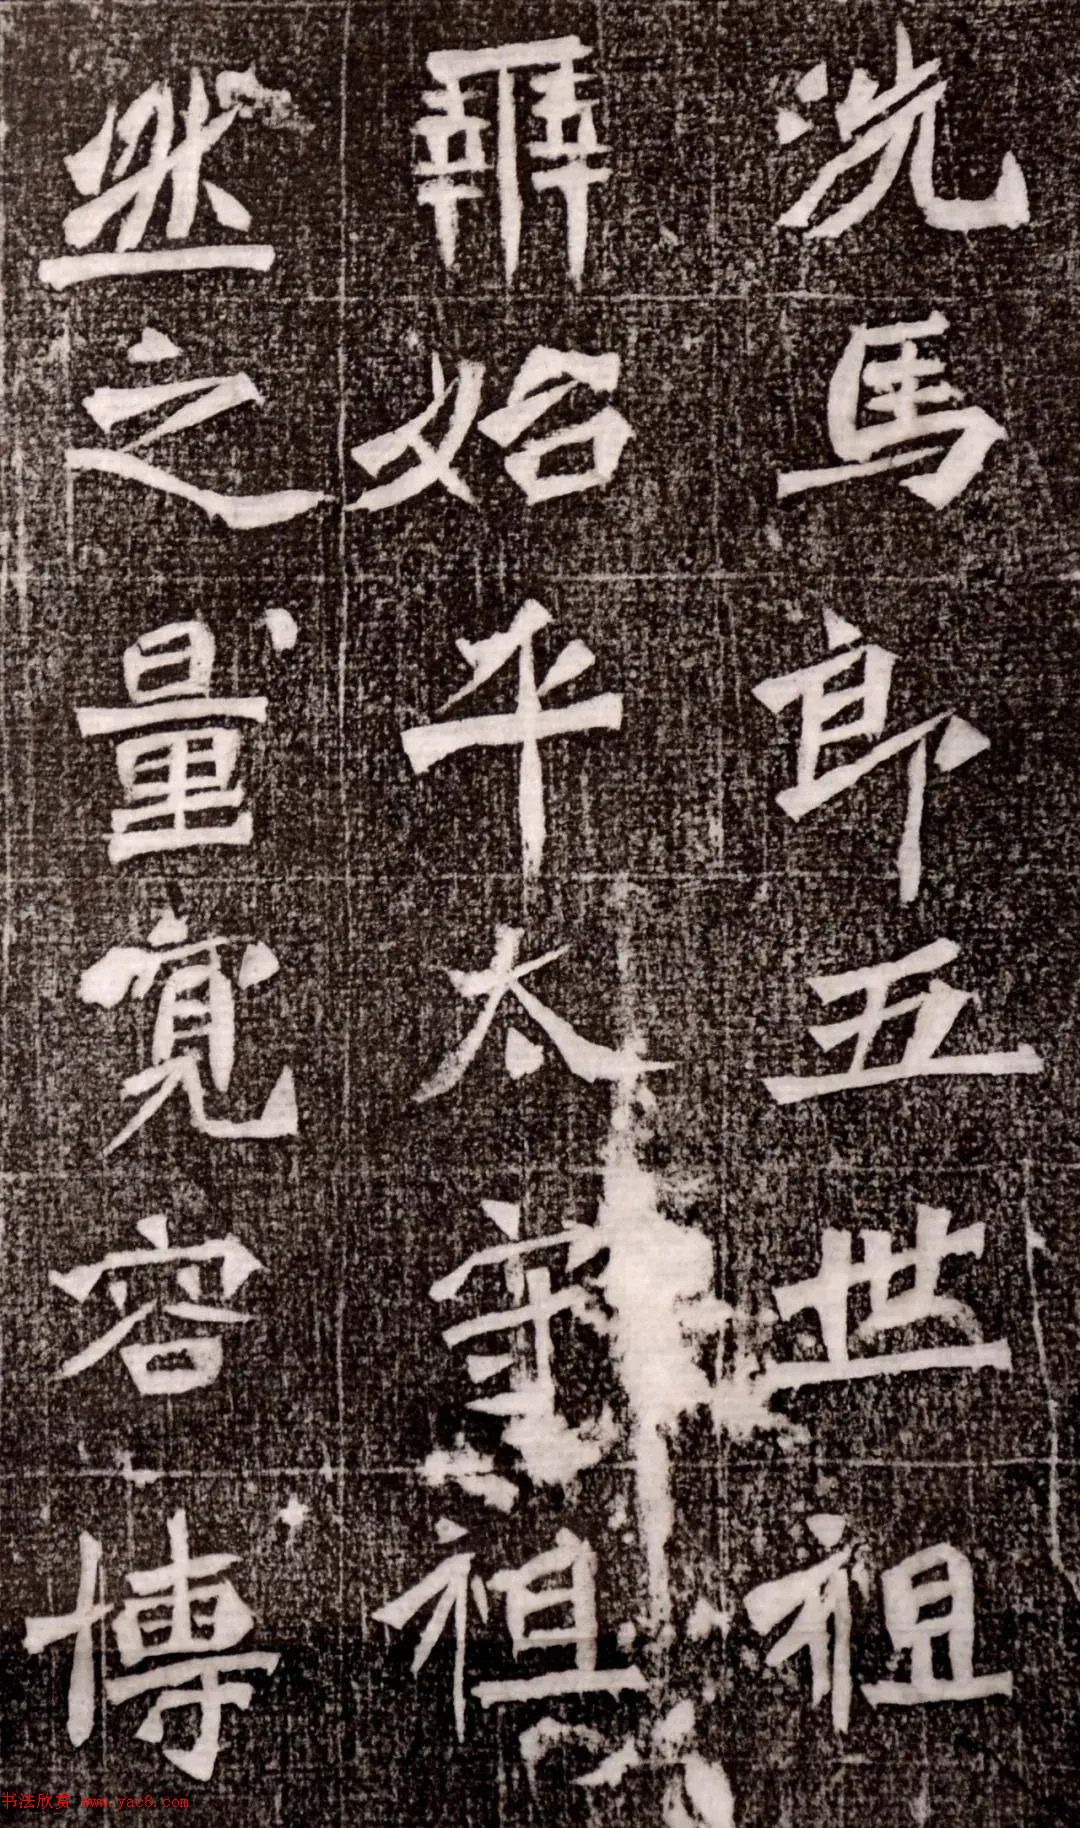 洗馬郎五世祖
始平太守祖
然之量寬容博
书法欣赏 www.yac8.com